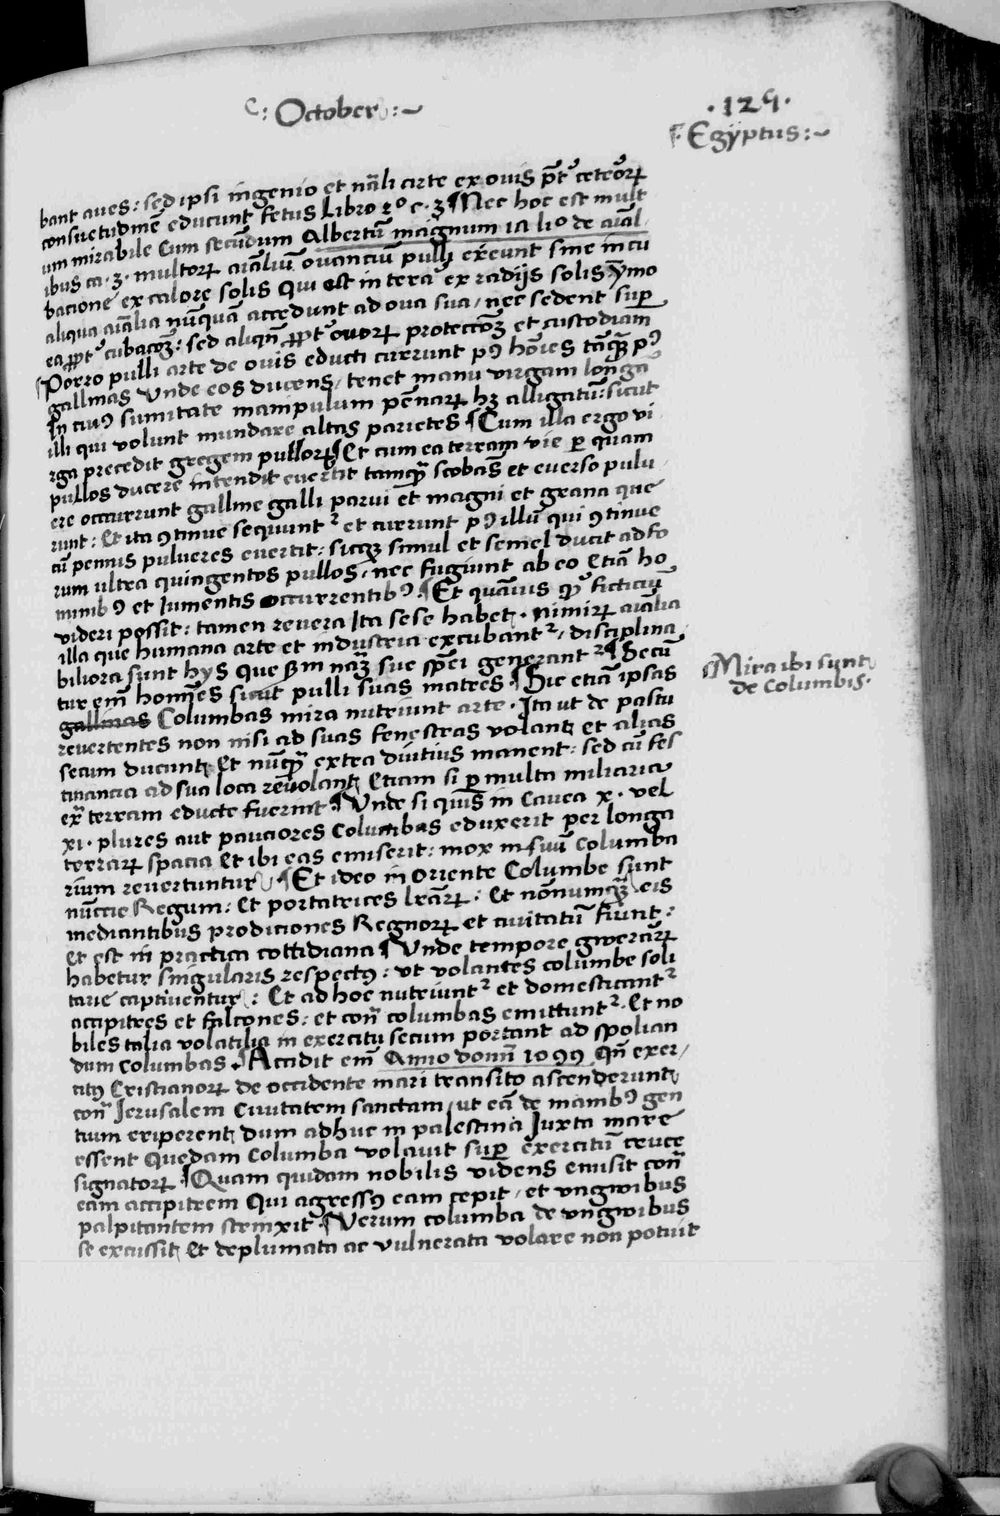 : October :~
.129.
Egÿptus :~
bant aues : sed ipsi ingenio et nāli arte ex ouis pt̄ ceteorꝝ
consuetudinē educunt fetus Libro 2º c . 3 Nec hoc est mult
um mirabile Cum secūdum Albertū magnum in liº de aīal
ibus ca . 3 . multorꝝ aīaliū ouanciū pulli exeunt sine incu
bacione ex calore solis Qui est in terra ex radijs solis ÿmo
aliqua aīalia nūquā accedunt ad oua sua / nec sedent sup
ea ꝓpt cubacoꝫ : sed aliqn̄ ꝓpt ouorꝝ proteccoꝫ et custodiam
Porro pulli arte de ouis educti currunt pꝰ hōies tāqꝫ pꝰ
gallinas Vnde eos ducens / tenet manu virgam longā
In cuiꝰ sumitate manipulum pēnarꝝ hꝫ alligatū : sicut
illi qui volunt mundare altas parietes ¶ Cum illa ergo vi
rga precedit gregem pullorꝝ ¶ Et cum ea terram vie per quam
pullos ducere intendit euertit tamqꝫ scobas et euerso pulu
ere occurrunt galline galli parui et magni et grana que
runt : Et ita ꝯtinue sequunt et currunt pꝰ illū qui ꝯtinue
cū pennis pulueres euertit : sicqꝫ simul et semel ducit ad fo
rum ultra quingentos pullos / nec fugiunt ab eo Etiā ho
minibꝰ et Iumentis occurrentibꝰ . ¶ Et quāuis qꝰ ficticiū
videri possit : tamen reuera Ita sese habet . nimirꝝ aīalia
illa que humana arte et industria excubant / disciplina
biliora sunt hys que scdm naꝫ sue spēi generant ¶ Secū
tur eīm homīes sicut pulli suas matres . ¶ Sic etiā ipsas
gallinas Columbas mira nutriunt arte . Ita ut de pastu
reuertentes non nisi ad suas fenestras volant et alias
secum ducant Et nūqꝫ extra diutius manent : sed cū fes
tinancia ad sua loca reuolant Etiam si per multa miliaria
ex terram educte fuerint ¶ Vnde si quis in Cauea x . vel
xi . plures aut pauciores Columbas eduxerit per longa
terrarꝝ spacia Et ibi eas emiserit : mox in suū Columba
rium reuertuntur . ¶ Et ideo in Oriente Columbe sunt
nūccie Regum : Et portatrices lrārꝝ : Et nōnumqꝫ eis
mediantibus prodiciones Regnorꝝ et ciuitatū fiunt :
et est in practica cottidiana ¶ Vnde tempore gwerarꝝ
habetur singularis respectꝰ : vt volantes columbe soli
tarie captiuentur : Et ad hoc nutriunt et domesticant
accipitres et falcones : et con̄ columbas emittunt . Et no
biles talia volatilia in exercitu secum portant ad spolian
dum Columbas . ¶ Accidit eīm Anno domī 1099 Qn̄ exer /
citꝰ Cristianorꝝ de occidente mari transito ascenderunt
con̄ Jerusalem Ciuitatem sanctam / ut eā de manibꝰ gen
tium eriperent dum adhuc in palestina Iuxta mare
essent Quedam Columba volauit sup exercitū cruce
signatorꝝ ¶ Quam quidam nobilis videns emisit con̄
eam accipitrem Qui agressꝰ eam cepit / et vngwibus
palpitantem strinxit ¶ Verum columba de vngwibus
se excussit Et deplumata ac vulnerata volare non potuit
Mira ibi sunt
de Columbis .